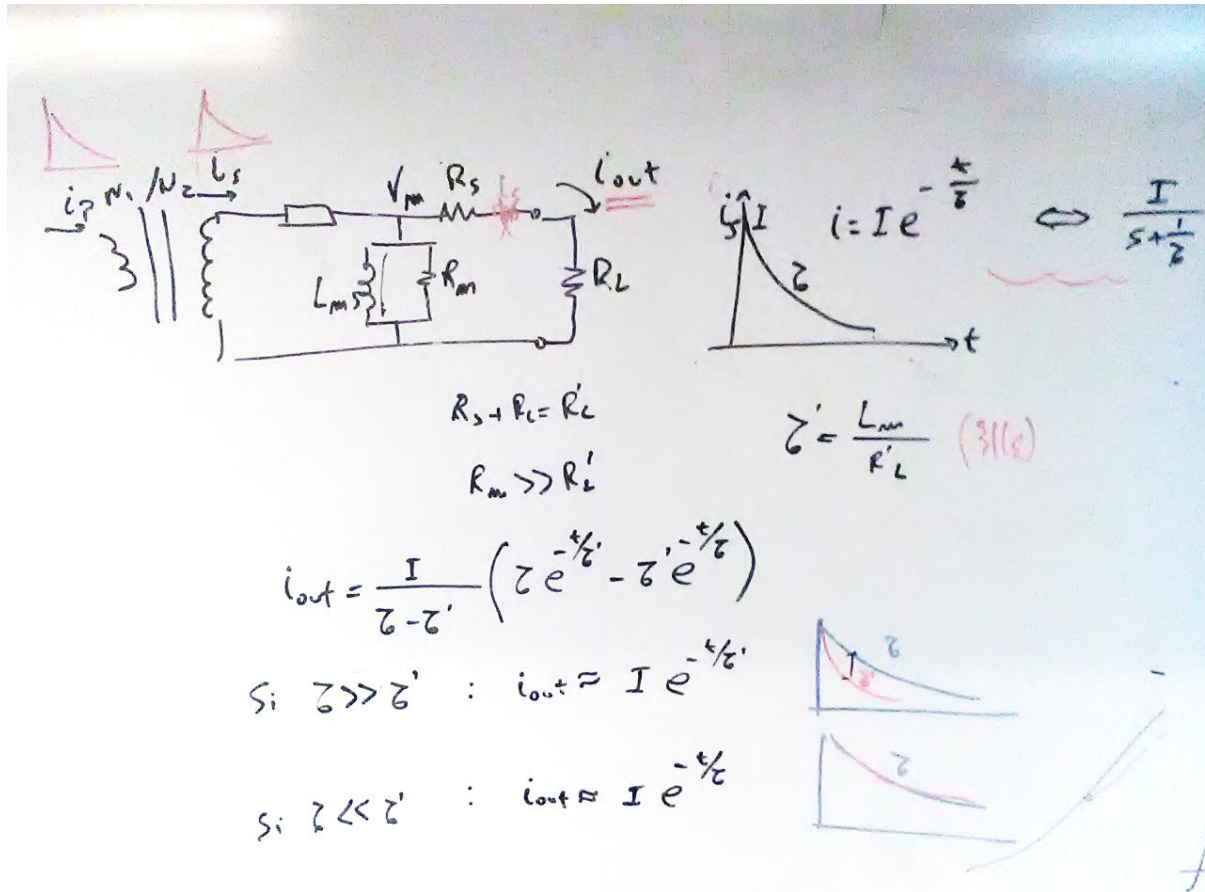 i_P N_1 / N_2 i_s
V_m R_s i_out
L_m R_m R_L
i I i = I e^{-t/τ} ⇔ I/(s+1/τ)
τ
t
R_s + R_L = R'_L
R_m >> R'_L
τ' = L_m/R'_L
i_out = I/(τ-τ') (τ e^{-t/τ'} - τ' e^{-t/τ})
si τ >> τ' : i_out ≈ I e^{-t/τ'}
τ
τ'
si τ << τ' : i_out ≈ I e^{-t/τ}
τ